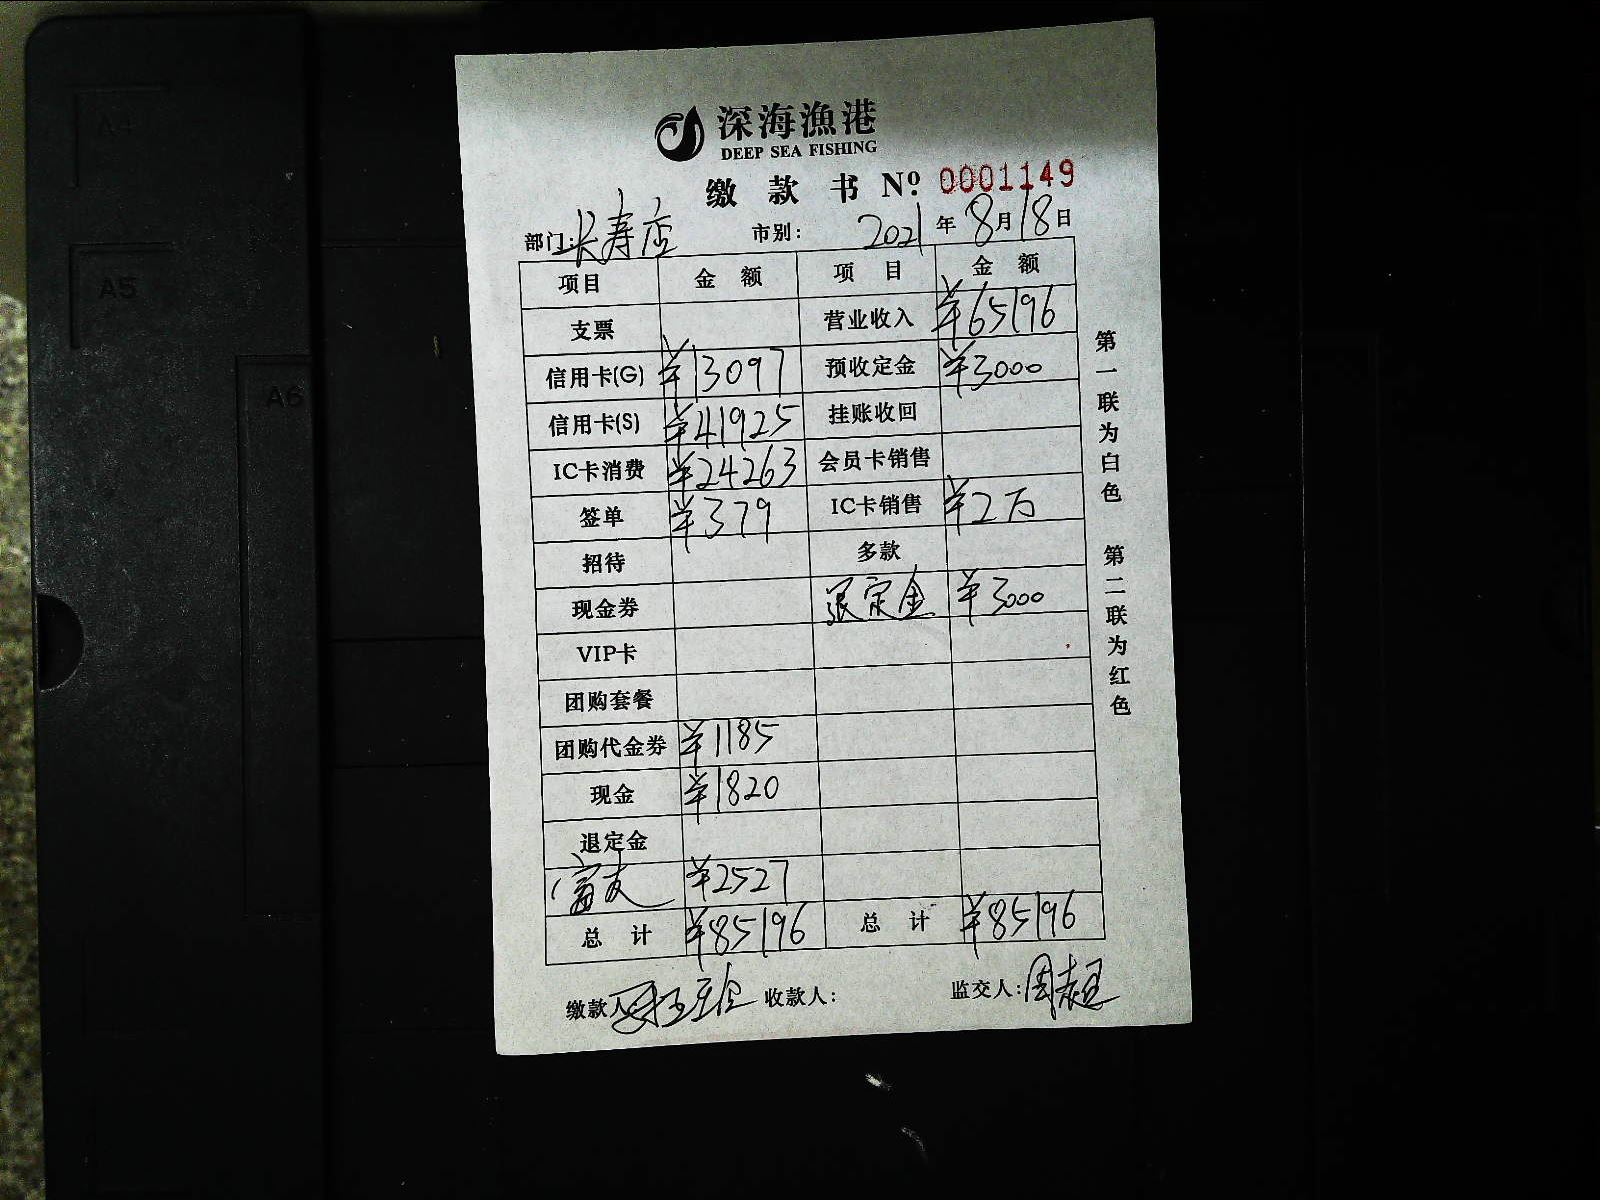 A4
A5
A6
深海渔港
DEEP SEA FISHING
缴款书 Nº: 0001149
部门: 长寿店 市别: 2021年8月18日
项目 金额 项目 金额
支票 营业收入 ¥65196
信用卡(G) ¥13097 预收定金 ¥3000
信用卡(S) ¥41925 挂账收回
IC卡消费 ¥24263 会员卡销售
签单 ¥379 IC卡销售 ¥2万
招待 多款
现金券 定金 ¥3000
VIP卡
团购套餐
团购代金券 ¥1185
现金 ¥1820
退定金
富友 ¥2527
总计 ¥85196 总计 ¥85196
缴款人 收款人: 监交人: 周志超
第一联为白色 第二联为红色